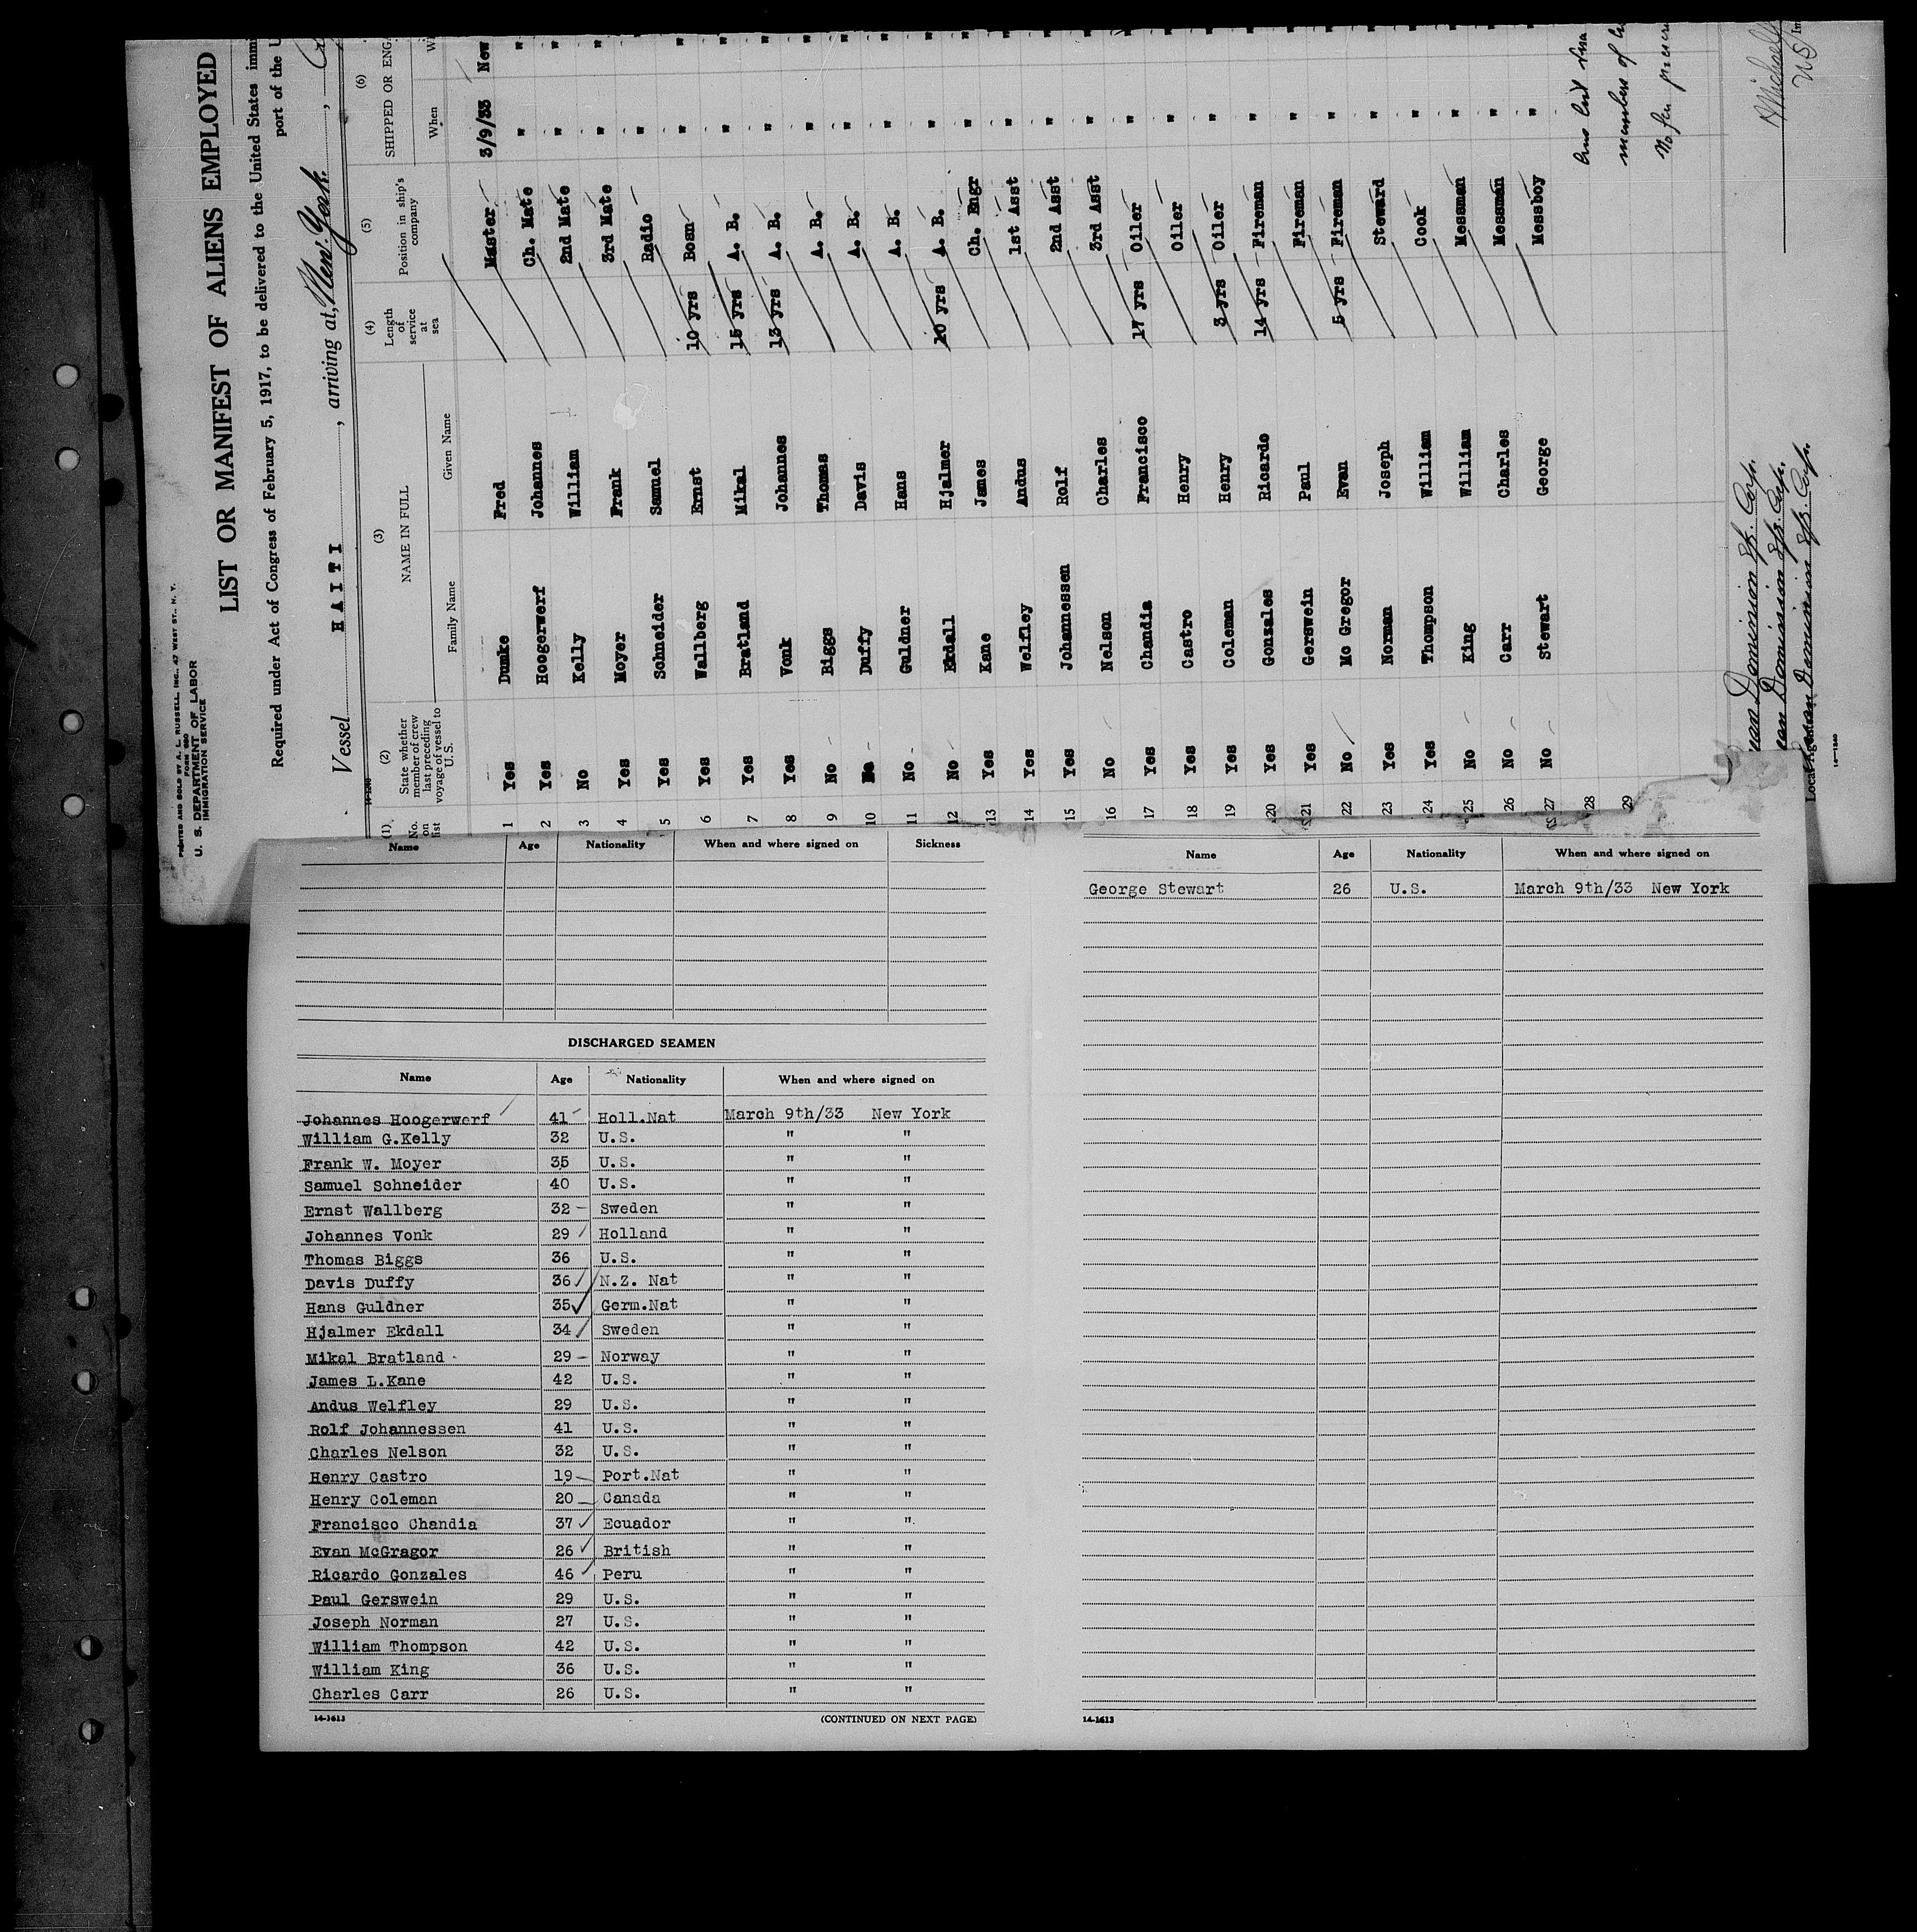 PRINTED AND SOLD BY A. L. RUSSELL, INC., 47 WEST ST., N. Y.
FORM 680
U. S. DEPARTMENT OF LABOR
IMMIGRATION SERVICE
LIST OR MANIFEST OF ALIENS EMPLOYED
Required under Act of Congress of February 5, 1917, to be delivered to the United States immi
port of the U
Vessel HAITI, arriving at, New York.,
(1) (2) (3) (4) (5) (6)
No. on list State whether member of crew last preceding voyage of vessel to U. S. NAME IN FULL Length of service at sea Position in ship's company SHIPPED OR ENG
Family Name Given Name When W
1 Yes Dumke Fred Master 3/9/33 New
2 Yes Hoogerwerf Johannes Ch. Mate " "
3 No Kelly William 2nd Mate " "
4 Yes Moyer Frank 3rd Mate " "
5 Yes Schneider Samuel Radio " "
6 Yes Wallberg Ernst 10 yrs Bosn " "
7 Yes Bratland Mikal 15 yrs A. B. " "
8 Yes Vonk Johannes 13 yrs A. B. " "
9 No Biggs Thomas A. B. " "
10 No Duffy Davis A. B. " "
11 No Guldner Hans A. B. " "
12 No Ekdall Hjalmer 10 yrs A. B. " "
13 Yes Kane James Ch. Engr " "
14 Yes Welfley Andus 1st Asst " "
15 Yes Johannessen Rolf 2nd Asst " "
16 No Nelson Charles 3rd Asst " "
17 Yes Chandia Francisco 17 yrs Oiler " "
18 Yes Castro Henry Oiler " "
19 Yes Coleman Henry 3 yrs Oiler " "
20 Yes Gonzales Ricardo 14 yrs Fireman " "
21 Yes Gerswein Paul Fireman " "
22 No Mc Gregor Evan 5 yrs Fireman " "
23 Yes Norman Joseph Steward " "
24 Yes Thompson William Cook " "
25 No King William Messman " "
26 No Carr Charles Messman " "
27 No Stewart George Messboy " "
28
29
members of
No
Dominion Corp.
Dominion Corp.
Dominion Corp.
Local Agent
14-1240
Name Age Nationality When and where signed on Sickness
DISCHARGED SEAMEN
Name Age Nationality When and where signed on
Johannes Hoogerwerf 41 Holl.Nat March 9th/33 New York
William G.Kelly 32 U.S. " "
Frank W. Moyer 35 U.S. " "
Samuel Schneider 40 U.S. " "
Ernst Wallberg 32 Sweden " "
Johannes Vonk 29 Holland " "
Thomas Biggs 36 U.S. " "
Davis Duffy 36 N.Z. Nat " "
Hans Guldner 35 Germ.Nat " "
Hjalmer Ekdall 34 Sweden " "
Mikal Bratland 29 Norway " "
James L.Kane 42 U.S. " "
Andus Welfley 29 U.S. " "
Rolf Johannessen 41 U.S. " "
Charles Nelson 32 U.S. " "
Henry Castro 19 Port.Nat " "
Henry Coleman 20 Canada " "
Francisco Chandia 37 Ecuador " "
Evan McGragor 26 British " "
Ricardo Gonzales 46 Peru " "
Paul Gerswein 29 U.S. " "
Joseph Norman 27 U.S. " "
William Thompson 42 U.S. " "
William King 36 U.S. " "
Charles Carr 26 U.S. " "
14-1613 (CONTINUED ON NEXT PAGE)
Name Age Nationality When and where signed on
George Stewart 26 U.S. March 9th/33 New York
14-1613